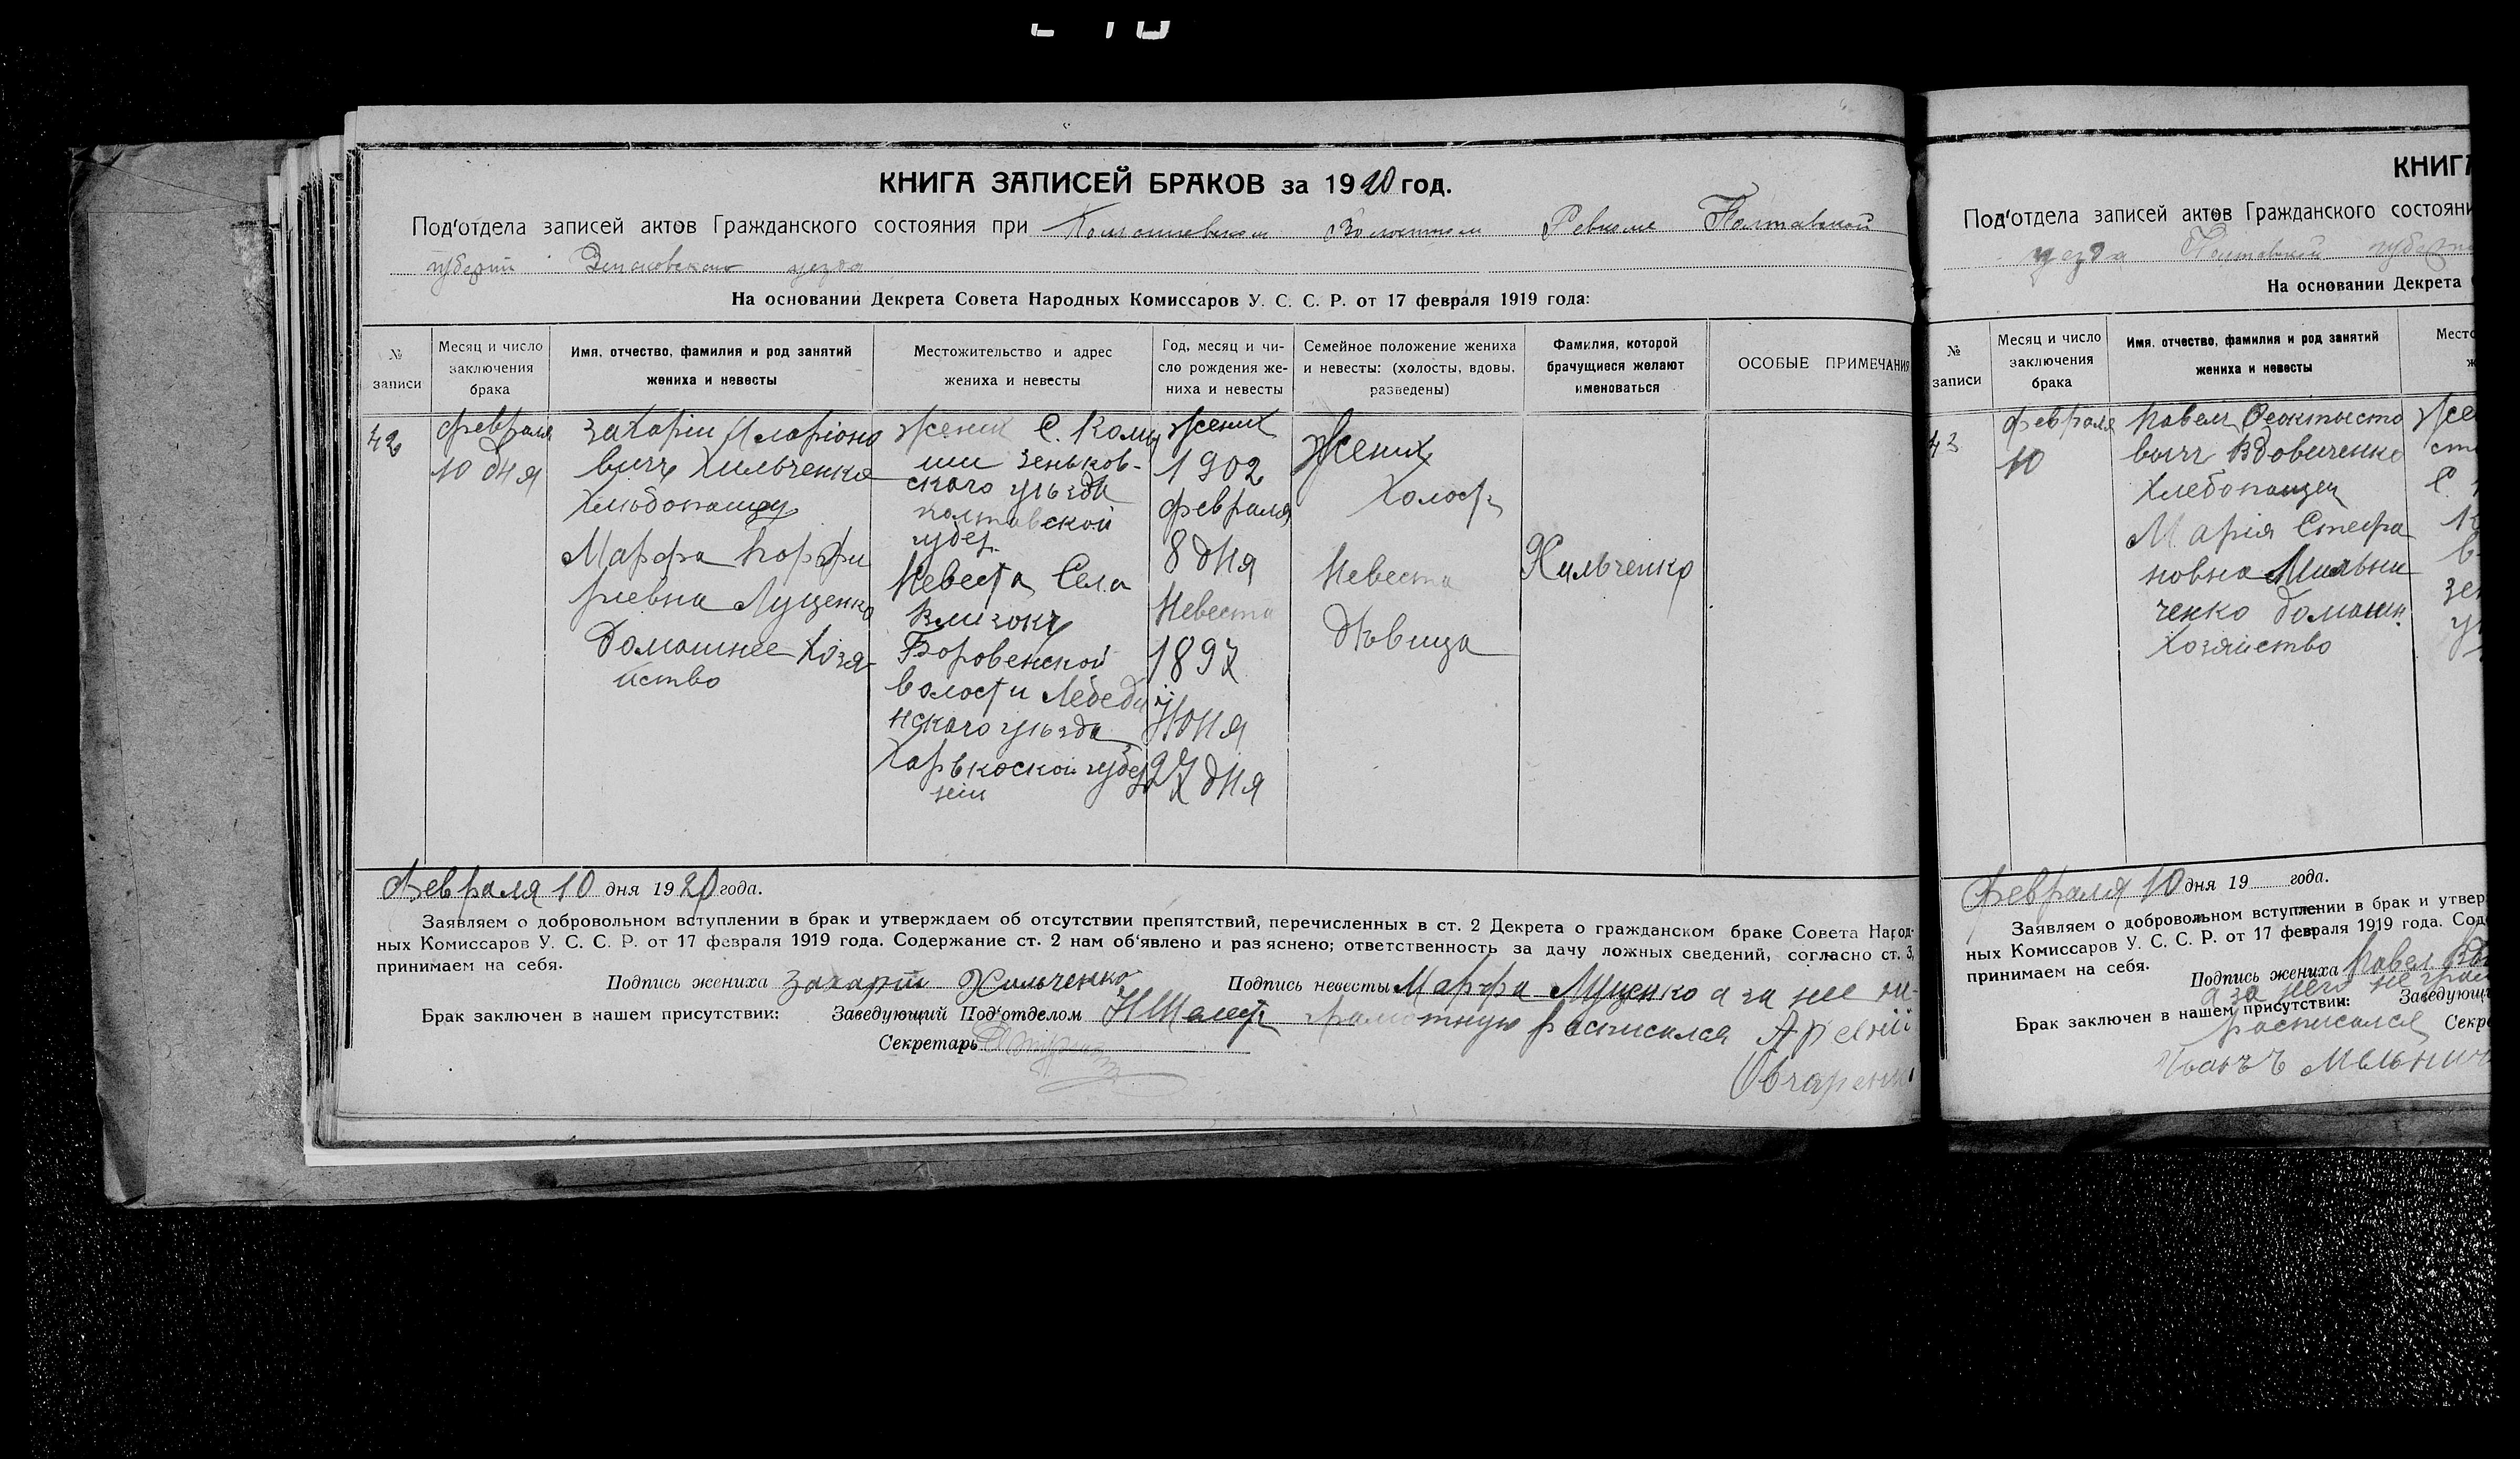 КНИГА ЗАПИСЕЙ БРАКОВ за 1920 год.
Под'отдела записей актов Гражданского состояния при Волостном Ревкоме Полтавской
губерни уезда
На основании Декрета Совета Народных Комиссаров У. С. С. Р. от 17 февраля 1919 года:
№ записи
Месяц и число
заключения
брака
Имя, отчество, фамилия и род занятий
жениха и невесты
Местожительство и адрес
жениха и невесты
Год, месяц и чи-
сло рождения же-
ниха и невесты
Семейное положение жениха
и невесты: (холосты, вдовы,
разведены)
Фамилия, которой
брачущиеся желают
именоваться
ОСОБЫЕ ПРИМЕЧАНИЯ
42
февраля
10 дня
Захарiи Иларiоно
вичъ Хильченко
Хлѣбопашец
Марфа Порфи
риевна Луценко
Домашнее Хозя-
йство
жених С. Комы
ши зеньков-
ского уѣзда
полтавской
губер.
Невеста Села
Боровенской
волости Лебеди
нского уѣзда
Харькоской губер
нiи
жених
1902
февраля
8 дня
Невеста
1897
Июня
27 дня
Жених
Холост
Невеста
Дѣвица
Хильченко
Февраля 10 дня 1920 года.
Заявляем о добровольном вступлении в брак и утверждаем об отсутствии препятствий, перечисленных в ст. 2 Декрета о гражданском браке Совета Народ-
ных Комиссаров У. С. С. Р. от 17 февраля 1919 года. Содержание ст. 2 нам об'явлено и раз'яснено; ответственность за дачу ложных сведений, согласно ст. 3,
принимаем на себя.
Подпись жениха Захарiи Хильченко Подпись невесты Марфа Луценко а за нее не-
Брак заключен в нашем присутствии: Заведующий Под'отделом грамотную расписался
Секретарь
Овчаренко
КНИГА
Под'отдела записей актов Гражданского состояни
уезда Полтавской губерни
На основании Декрета
№ записи
Месяц и число
заключения
брака
Имя, отчество, фамилия и род занятий
жениха и невесты
Место
ж
43
февраля
10
Павел Феоктисто
вичъ Вдовиченко
Хлебопашец
Марiя Стефа
новна
ченко домашн.
Хозяйство
Же
Февраля 10 дня 19 года.
Заявляем о добровольном вступлении в брак и утвер
ных Комиссаров У. С. С. Р. от 17 февраля 1919 года. Сод
принимаем на себя.
Подпись жениха Павел Вдо
а за него не грам
Брак заключен в нашем присутствии: Заведующи
расписался Секре
Иванъ Мельнич